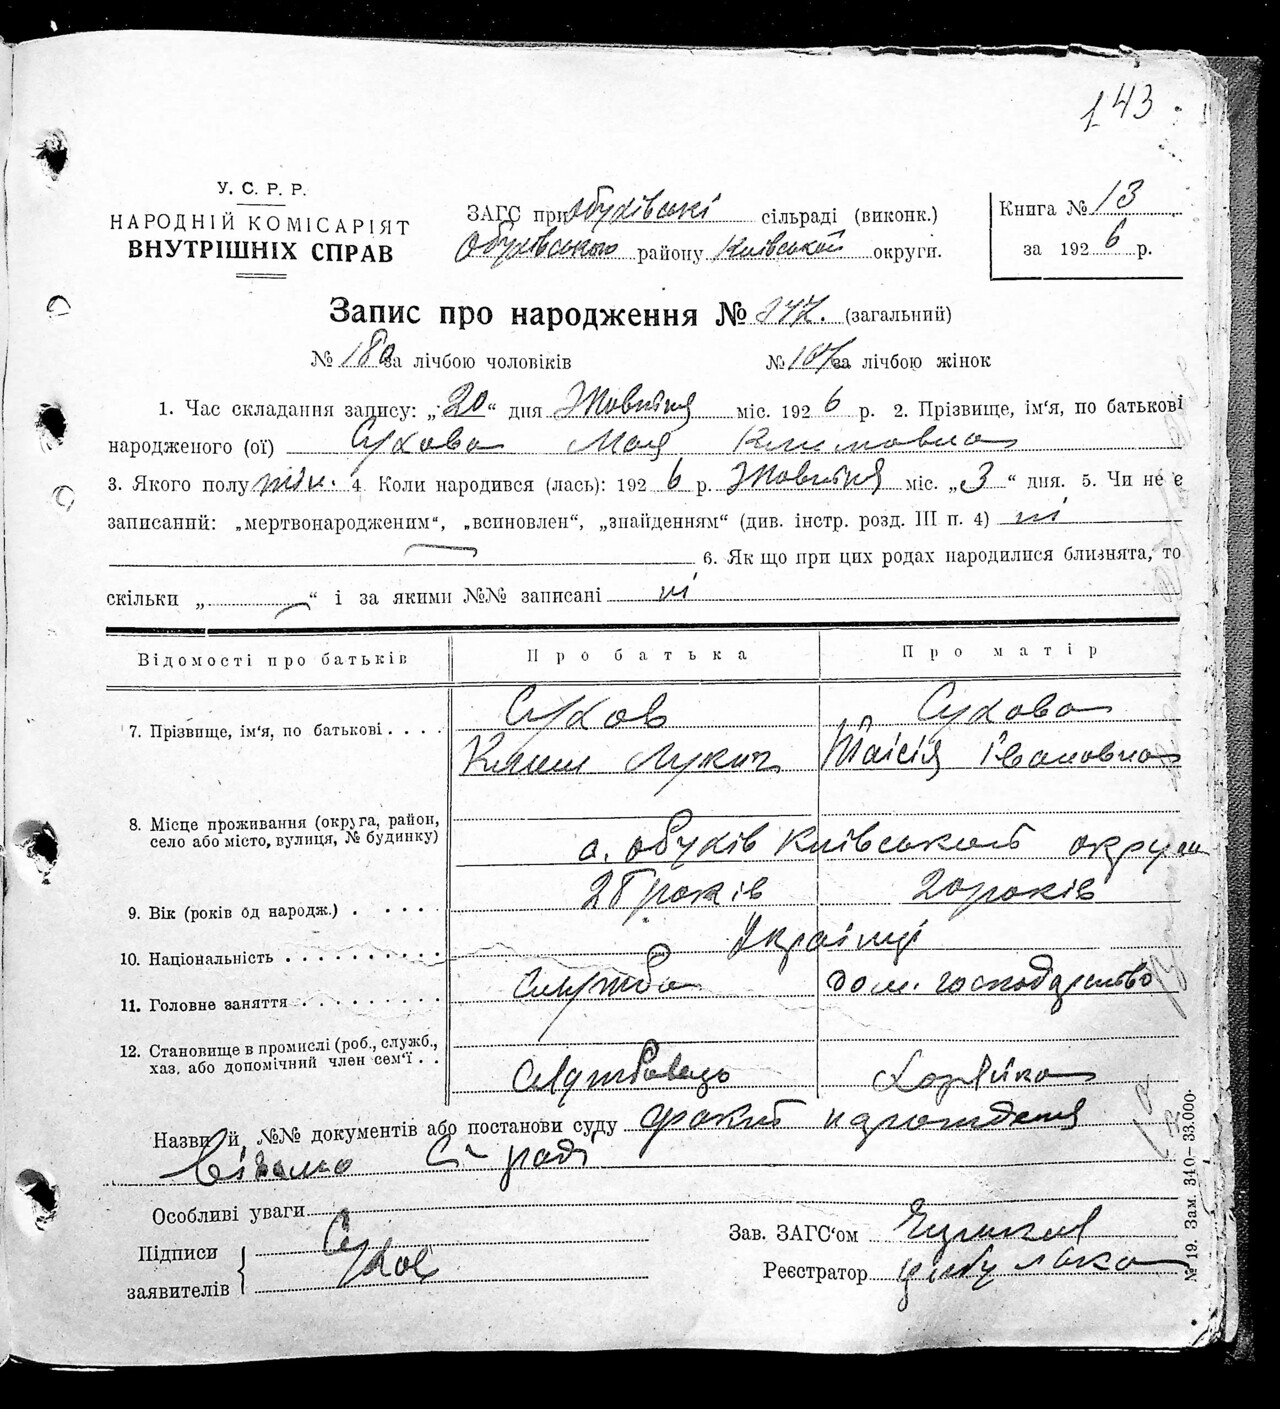 143
У. С. Р. Р.
НАРОДНІЙ КОМІСАРІЯТ
ВНУТРІШНІХ СПРАВ
ЗАГС при Обухівські сільраді (виконк.)
Обухівського району Київської округи.
Книга № 13
за 1926 р.
Запис про народження № 347. (загальний)
№ 180 за лічбою чоловіків № 167 за лічбою жінок
1. Час складання запису: „20“ дня Жовтня міс. 1926 р. 2. Прізвище, ім'я, по батькові
народженого (ої) Сухова Мая Климовна
3. Якого полу жін. 4. Коли народився (лась): 1926 р. Жовтня міс. „3“ дня. 5. Чи не є
записаний: „мертвонародженим“, „всиновлен“, „знайденням“ (див. інстр. розд. III п. 4) ні
6. Як що при цих родах народилися близнята, то
скільки „ “ і за якими №№ записані ні
Відомості про батьків Про батька Про матір
7. Прізвище, ім'я, по батькові . . . . Сухов Сухова
Клим Лукич Таісія Івановна
8. Місце проживання (округа, район,
село або місто, вулиця, № будинку)
с. Обухів Київської округи
9. Вік (років од народж.) . . . . . років 20 років
10. Національність . . . . . . . . . . Українці
11. Головне заняття . . . . . . . . . служба дом. господарство
12. Становище в промислі (роб., службо.,
хаз. або допомічний член сем'ї . .
службовець Хазяйка
Назви й №№ документів або постанови суду факт народження
відомо С/раді
Особливі уваги
Підписи
заявителів
Сухов
Зав. ЗАГС'ом
Реєстратор
№ 19. Зам. 340—33.000.